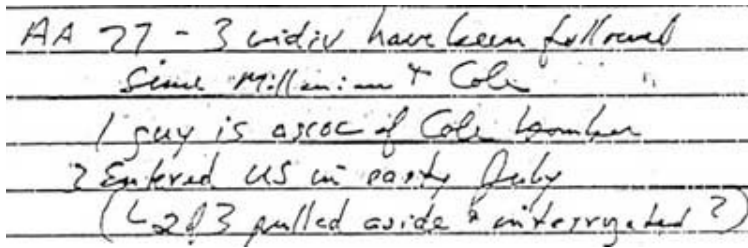 AA 77 - 3 indiv have been followed
since Millennium + Cole
1 guy is assoc of Cole bomber
2 Entered US in early July
(2 of 3 pulled aside & interrogated ?)